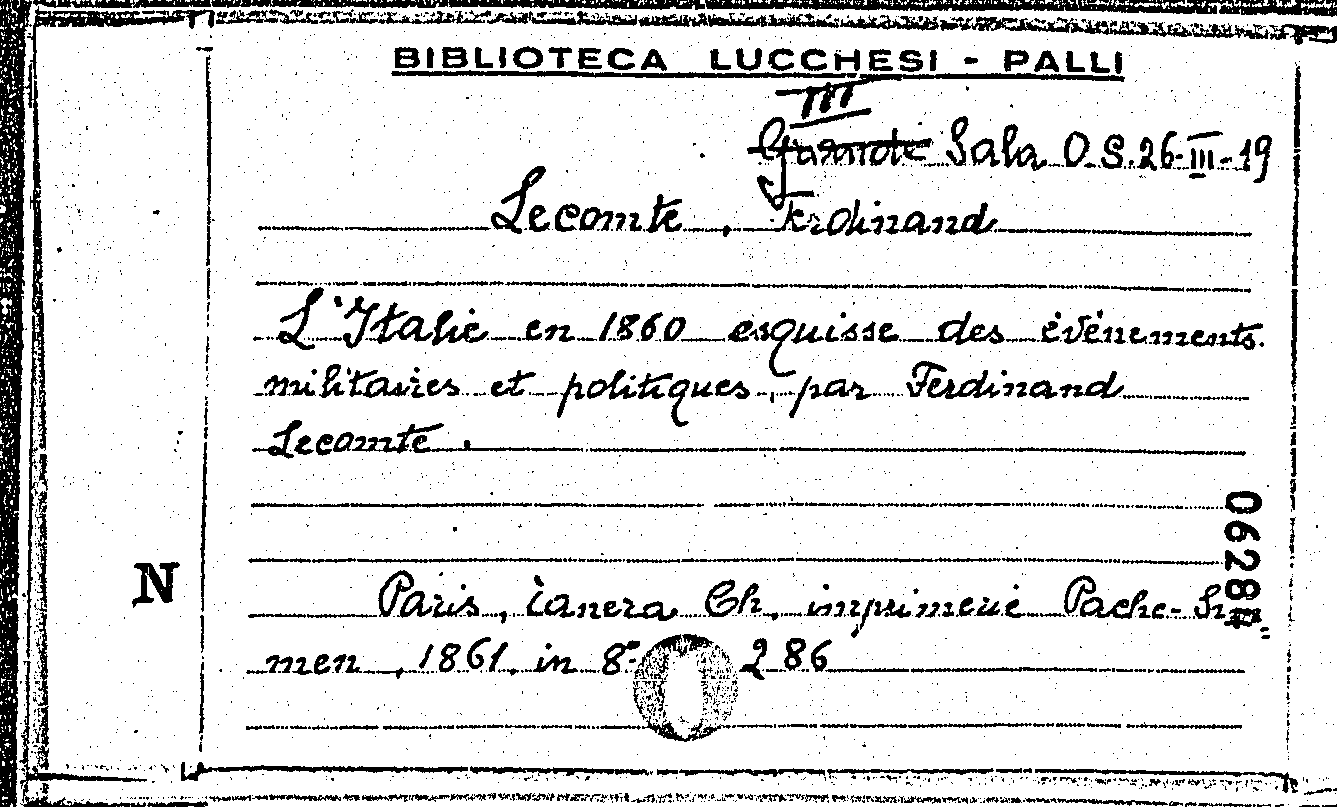 BIBLIOTECA LUCCHESI - PALLI
III
Grande Sala O.S.26-III-19
Lecomte, Ferdinand
L'Italie en 1860 esquisse des événements
militaires et politiques, par Ferdinand
Lecomte.
Paris, Tanera Ch. imprimerie Pache-Sim-
men, 1861. in 8º 286
N
0628